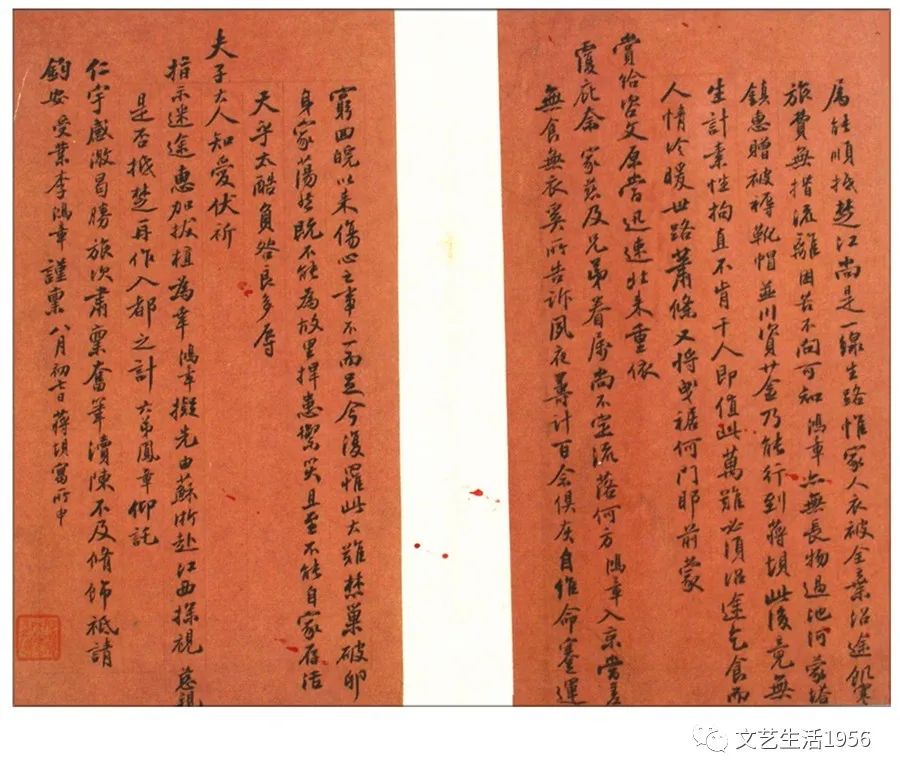 屬能順抵楚江尚是一線生路惟家人衣被全棄沿途飢寒
旅費無措流離困苦不問可知鴻章亦無長物過池河蒙塔
鎮惠贈被褥靴帽並川資廿金乃能行到蔣垻此後竟無
生計素性拘直不肯干人即值此萬難必須沿途乞食而
人情冷暖世路蕭條又將曳裾何門耶前蒙
賞給咨文原當迅速北來重依
覆庇奈家慈及兄弟眷屬尚不定流落何方鴻章入京當差
無食無衣奚所告訴夙夜籌計百念俱灰自維命蹇運
窮回皖以來傷心之事不一而足今復罹此大難焚巢破卵
身家蕩然既不能為故里捍患禦災且至不能自家存活
天乎太酷負咎良多辱
夫子大人知愛伏祈
指示迷途惠加拔植為幸鴻章擬先由蘇浙赴江西探視慈親
是否抵楚再作入都之計六弟鳳章仰託
仁宇感激曷勝旅次肅稟奮筆瀆陳不及脩飾祗請
鈞安受業李鴻章謹稟八月初七日蔣垻寓所申
文艺生活1956